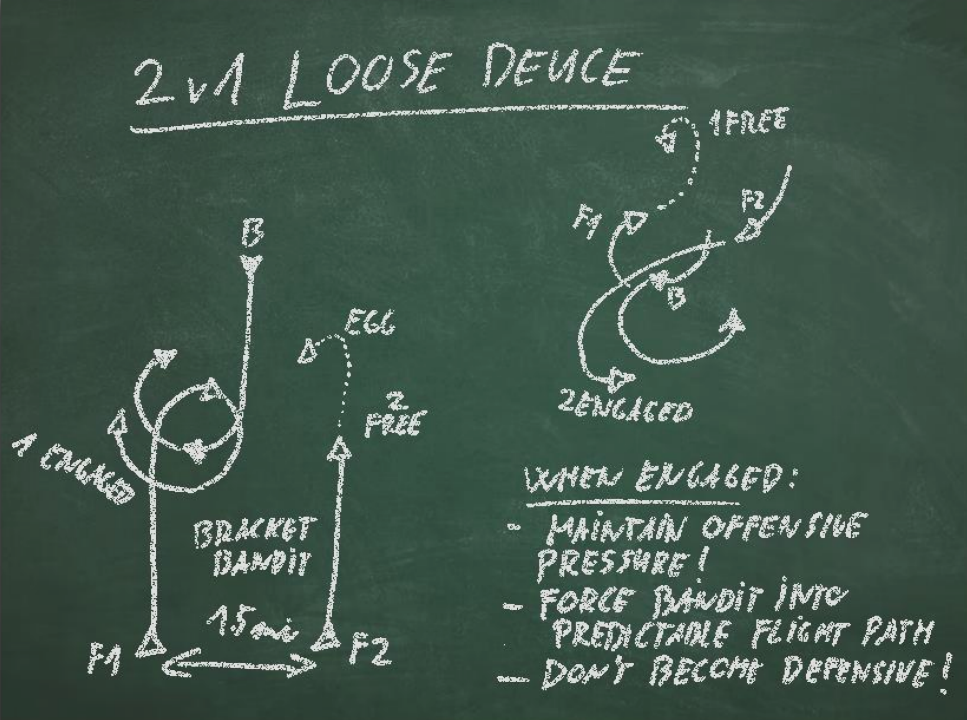 2v1 LOOSE DEUCE
1 FREE
F1
F2
B
2 ENGAGED
B
EGG
2
FREE
1 ENGAGED
BRACKET
BANDIT
1.5 mi
F1
F2
WHEN ENGAGED:
- MAINTAIN OFFENSIVE
PRESSURE!
- FORCE BANDIT INTO
PREDICTABLE FLIGHT PATH
- DON'T BECOME DEFENSIVE!